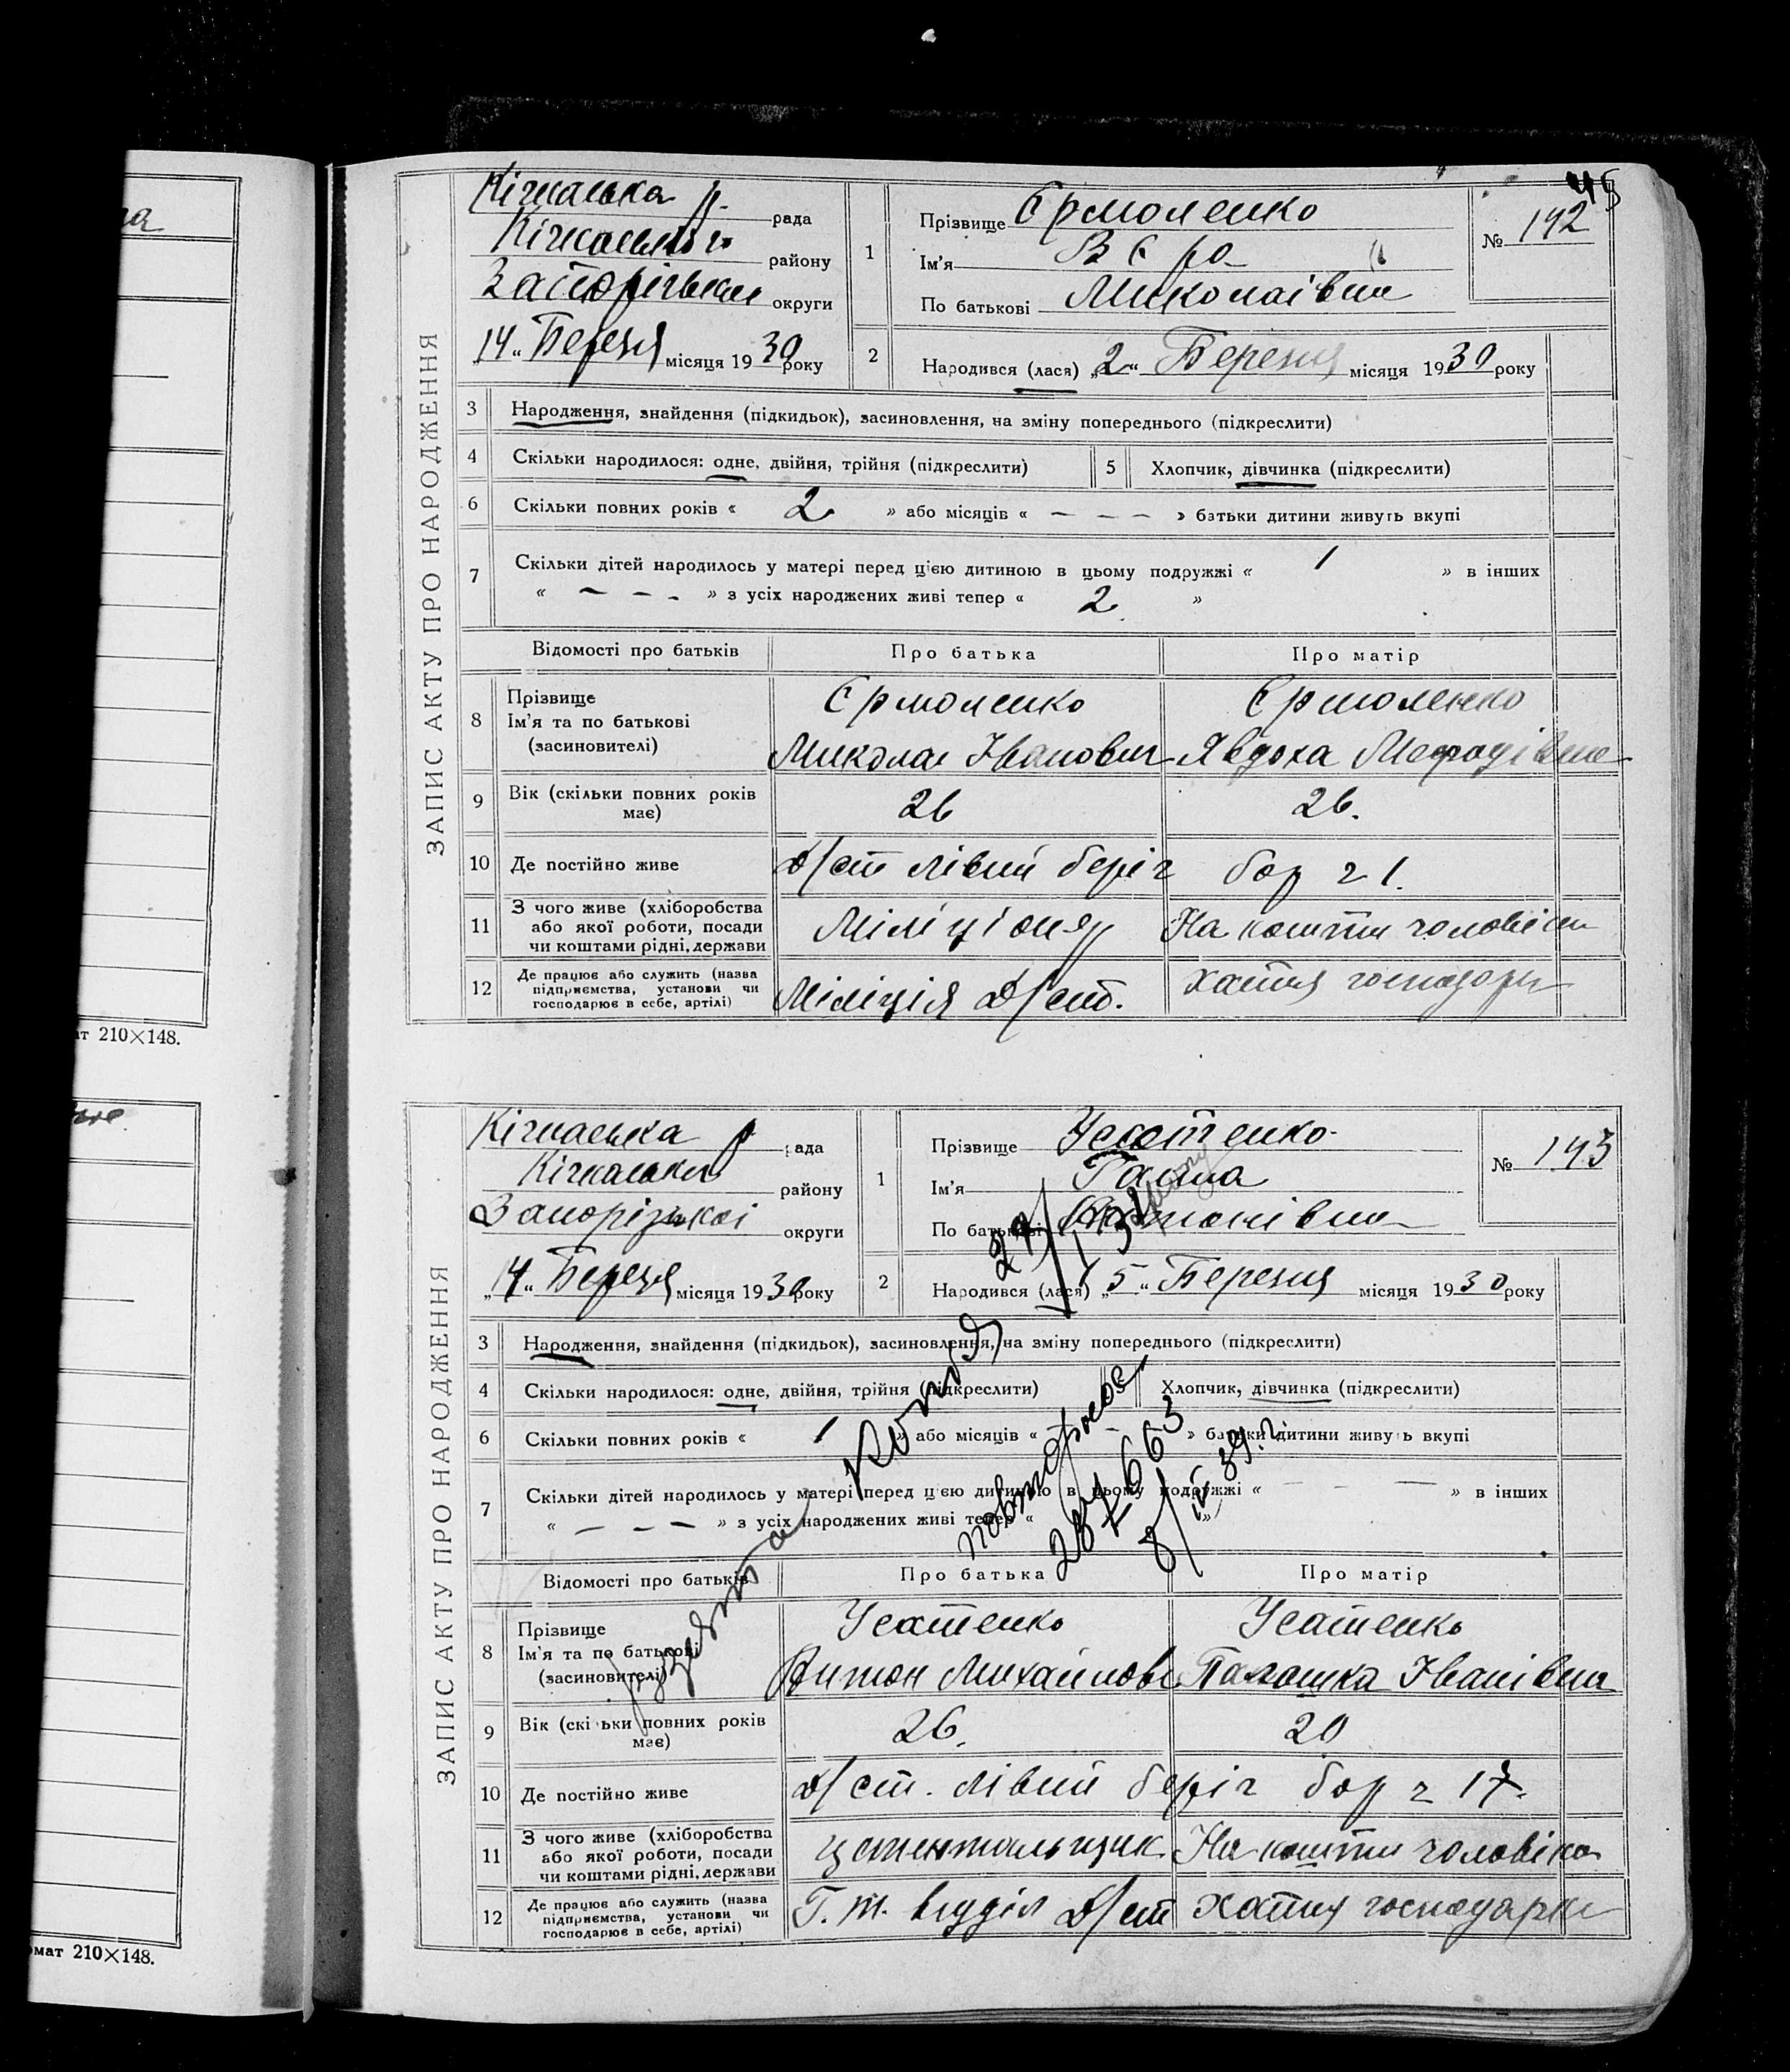 45
ЗАПИС АКТУ ПРО НАРОДЖЕННЯ
Кічкаська р. рада
Кічкаського району
Запорізької округи
„14“ Березня місяця 1930 року
1
Прізвище Єрмоленко
Ім'я Віра
По батькові Миколаївна
№ 142
2
Народився (лася) „2“ Березня місяця 1930 року
3 Народження, знайдення (підкидьок), засиновлення, на зміну попереднього (підкреслити)
4 Скільки народилося: одне, двійня, трійня (підкреслити) 5 Хлопчик, дівчинка (підкреслити)
6 Скільки повних років « 2 » або місяців « — — — » батьки дитини живуть вкупі
7 Скільки дітей народилось у матері перед цією дитиною в цьому подружжі « 1 » в інших
« — — — » з усіх народжених живі тепер « 2 »
Відомості про батьків Про батька Про матір
8 Прізвище Єрмоленко Єрмоленко
Ім'я та по батькові
(засиновителі) Микола Іванович Явдоха Мефодівна
9 Вік (скільки повних років має) 26 26.
10 Де постійно живе Д/ст лівий беріг бар 21.
11 З чого живе (хліборобства
або якої роботи, посади
чи коштами рідні, держави Міліціонер На кошти чоловіка
12 Де працює або служить (назва
підприємства, установи чи
господарює в себе, артілі) Міліція Д/ст. хатня господарк
ЗАПИС АКТУ ПРО НАРОДЖЕННЯ
Кічкаська р. рада
Кічкаського району
Запорізької округи
„14“ Березня місяця 1930 року
1
Прізвище Усатенко
Ім'я Галина
По батькові Антонівна
№ 143
2
Народився (лася) „5“ Березня місяця 1930 року
3 Народження, знайдення (підкидьок), засиновлення, на зміну попереднього (підкреслити)
4 Скільки народилося: одне, двійня, трійня (підкреслити) Хлопчик, дівчинка (підкреслити)
6 Скільки повних років « 1 » або місяців « — » батьки дитини живуть вкупі
7 Скільки дітей народилось у матері перед цією дитиною в цьому подружжі « — — — » в інших
« — — — » з усіх народжених живі тепер « »
Відомості про батьків Про батька Про матір
8 Прізвище Усатенко Усатенко
Ім'я та по батькові
(засиновителі) Антон Михайлов Палашка Іванівна
9 Вік (скільки повних років має) 26. 20
10 Де постійно живе Д/ст. лівий беріг бар 217.
11 З чого живе (хліборобства
або якої роботи, посади
чи коштами рідні, держави цементальщик На кошти чоловіка
12 Де працює або служить (назва
підприємства, установи чи
господарює в себе, артілі) Г.т. відділ Д/ст хатня господарк
видана копія
повторное
287663
8/IV 39.г.
т 210×148.
мат 210×148.